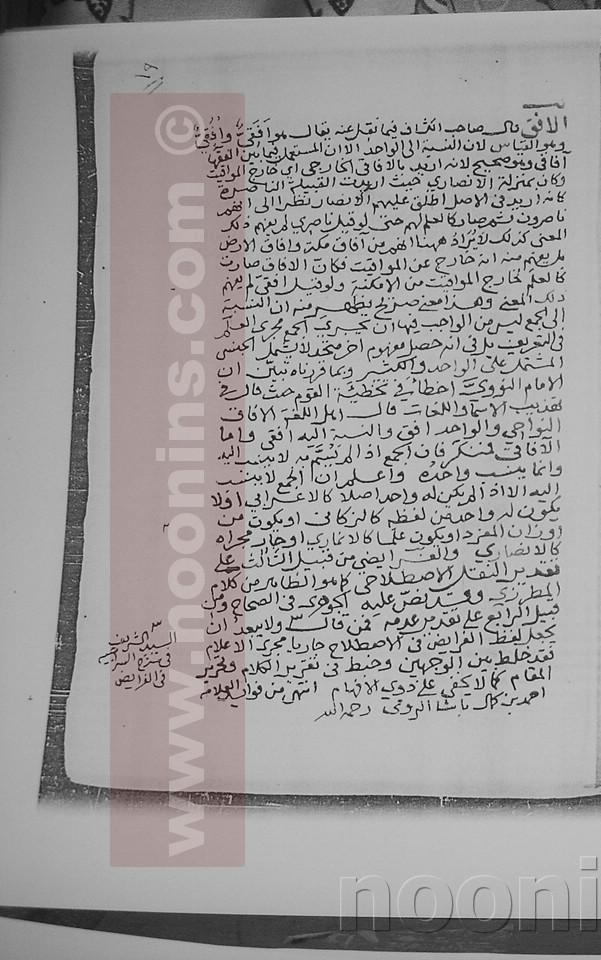 ١٩
الافقي قال صاحب الكشاف فيما نقل عنه يقال هو أفَقيّ وأُفُقيّ
وهو القياس لان النسبة الى الواحد الا ان المستعمل فيما بين الفقهاء
آفاقي وهو صحيح لانه اريد بالآفاقي الخارجي اي خارج المواقيت
وكان بمنزلة الانصاري حيث اريدت القبيلة الناصرة
كانه اريد في الاصل اطلق عليهم الانصار نظرا الى انهم
ناصرون ثم صار كالعلم لهم حتى لو قيل ناصري لم يفهم ذلك
المعنى كذلك لا يراد ههنا انهم من آفاق مكة وآفاق الارض
بل يفهم منه انه خارج عن المواقيت فكان الآفاق صارت
كالعلم لخارج المواقيت من الامكنة ولو قيل افقي لم يفهم
ذلك المعنى وهذا معنى صريح يظهر منه ان النسبة
الى الجمع ليس من الواجب فيها ان يجري الجمع مجرى العلم
في التعريف بل في انه حصل مفهوم آخر متحد لا يشمل الجنس
المشتمل على الواحد والكثير وبما قررناه تبين ان
الامام النووي اخطأ في تخطئة القوم حيث قال في
تهذيب الاسما واللغات قال اهل اللغة الآفاق
النواحي والواحد افق والنسبة اليه افقي واما
الآفاقي فمنكر فان الجمع اذا لم يسم به لا ينسب اليه
وانما ينسب واحده واعلم ان الجمع لا ينسب
اليه الا اذا لم يكن له واحد اصلا كالاعرابي اولا
يكون له واحد من لفظه كالركابي او يكون من
اوزان المفرد او يكون علما كالانماري او جار مجراه
كالانصاري والفرايضي من قبيل الثالث على
تقدير النقل الاصطلاحي كما هو الظاهر من كلام
المطرزي وقد نص عليه الجوهري في الصحاح ومن
قبيل الرابع على تقدير عدمه فمن قال ولا يبعد ان
يجعل لفظ الفرايض في الاصطلاح جاريا مجرى الاعلام
فقد خلط بين الوجهين وخبط في تقرير الكلام وتحرير
المقام كما لا يخفى على ذوي الافهام انتهى من فوايد العلامة
احمد بن كمال باشا الرومي رحمه الله
السيد الشريف
في شرح السراجية
في الفرايض
www.noonins.com ©
nooni